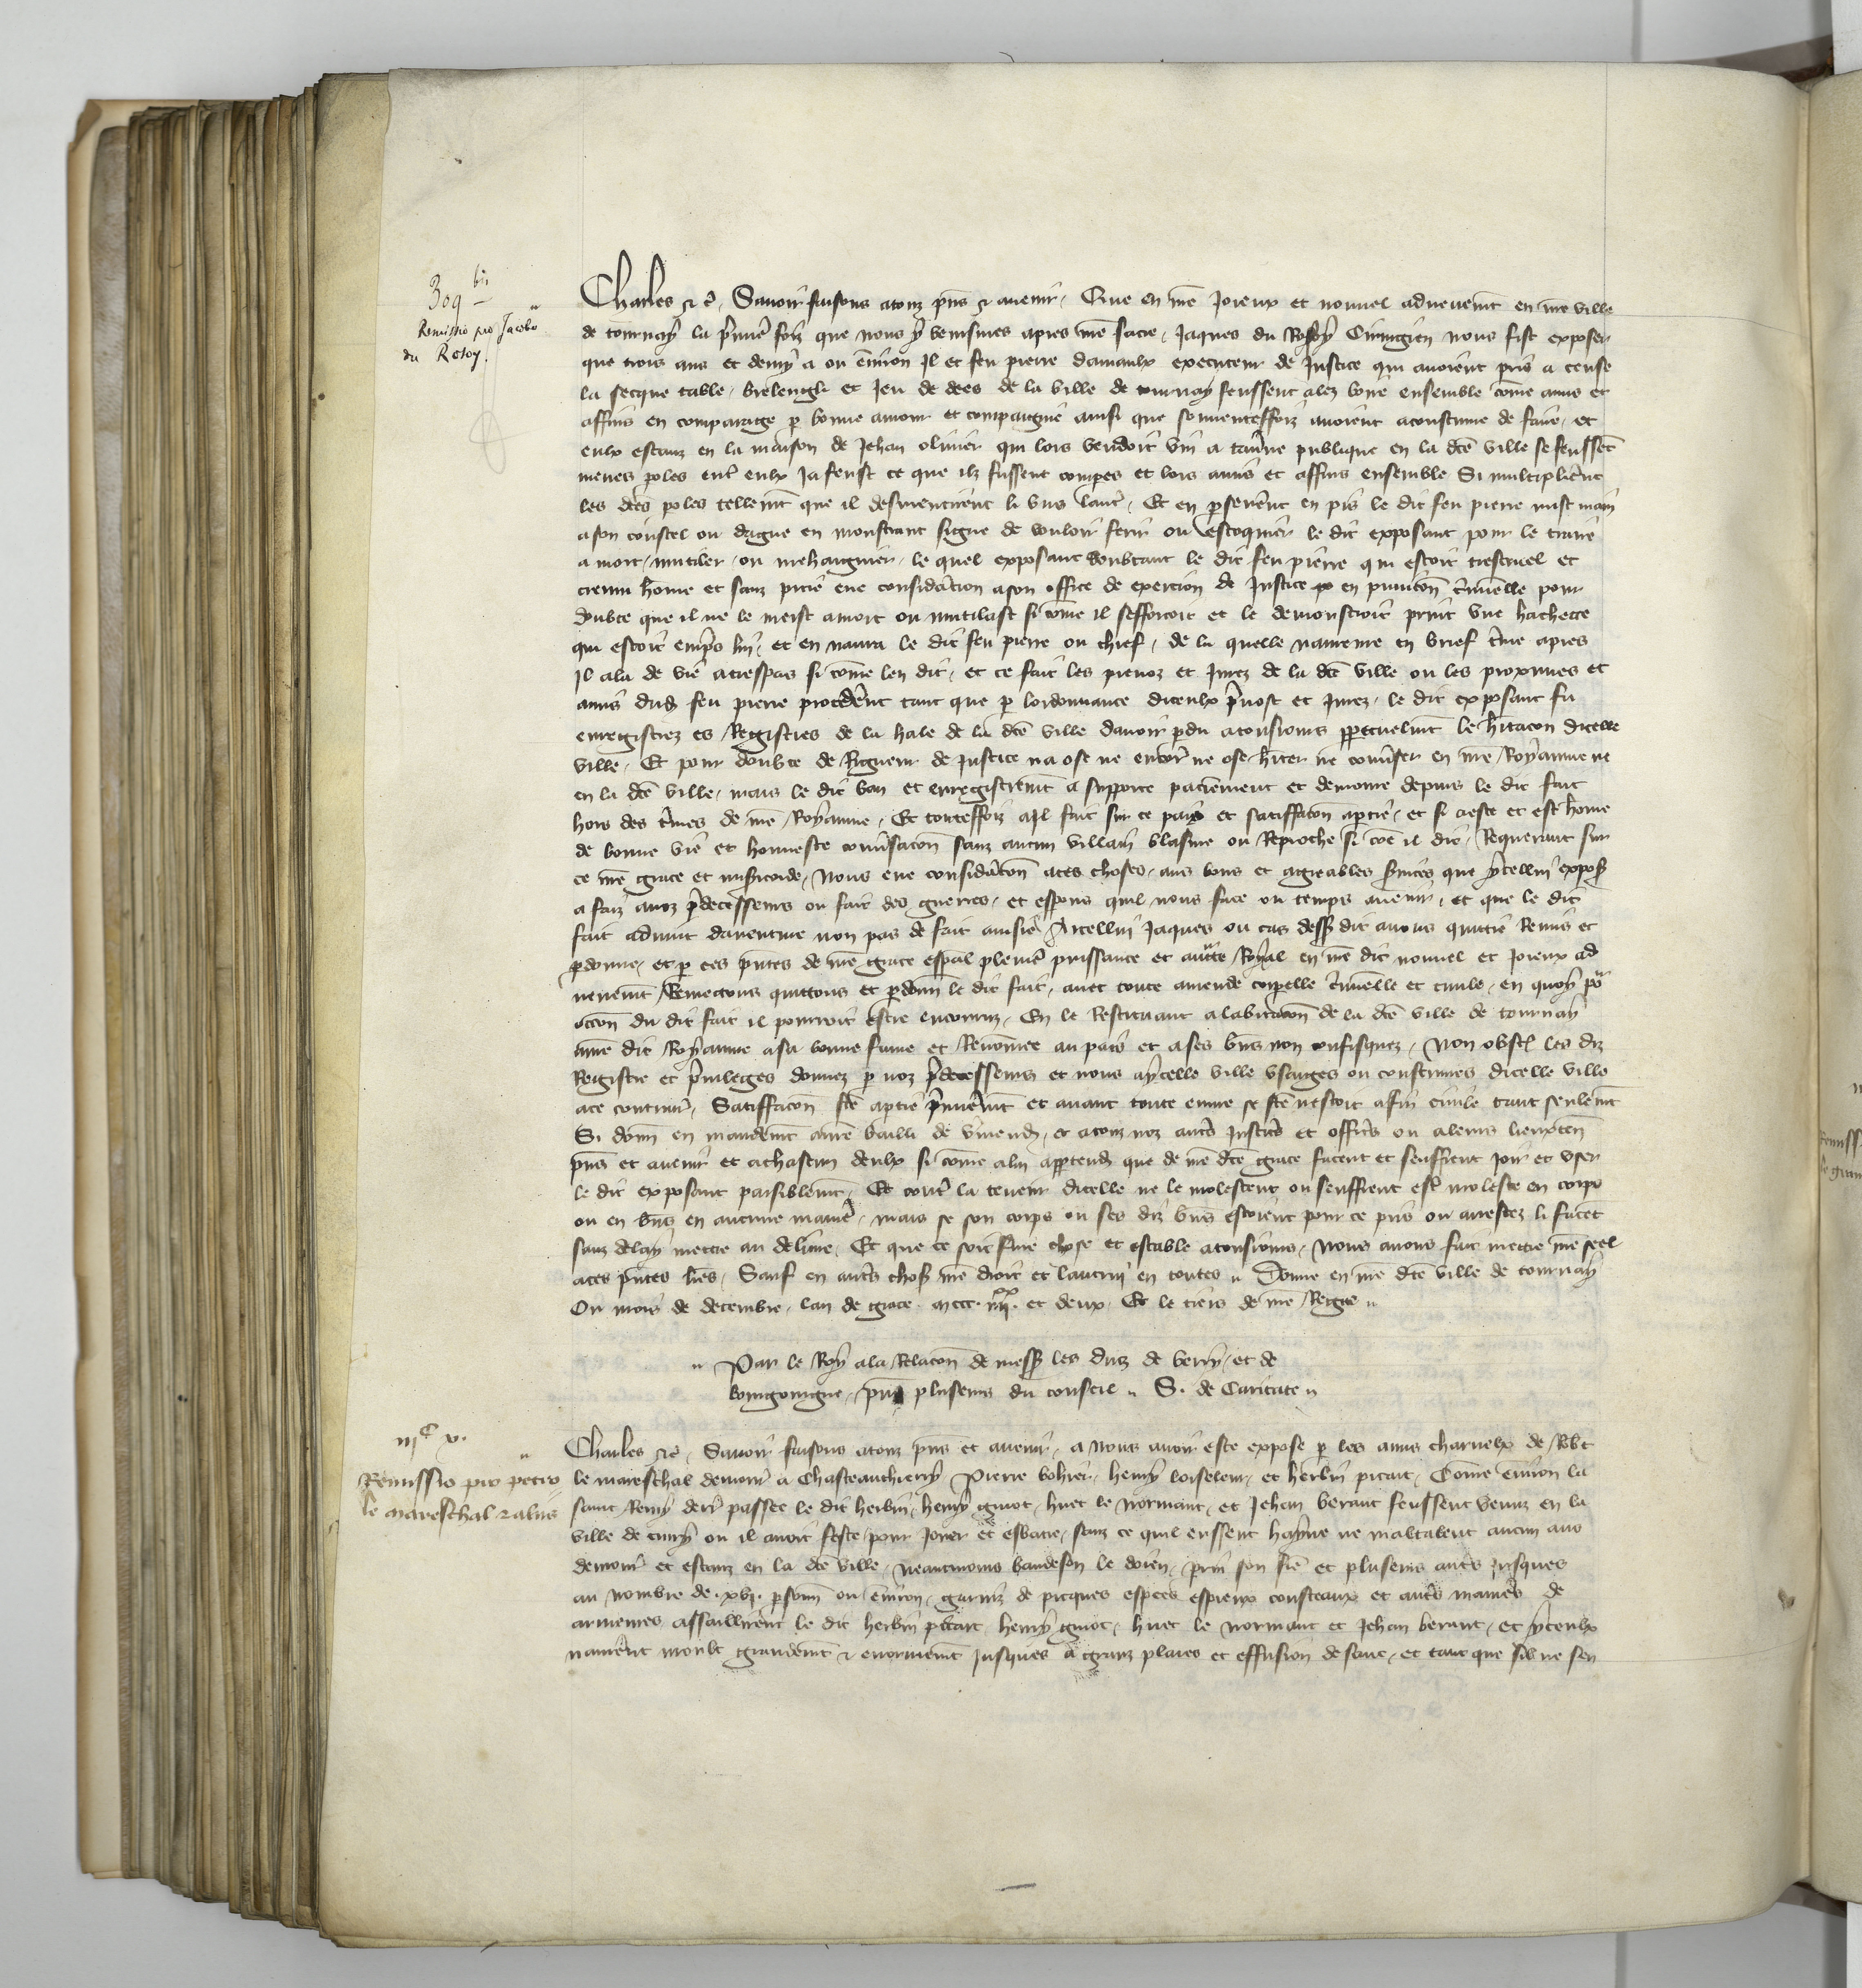 304 bis
Remissio pro Jacobo
du Rosoy.
Charles &c. Savoir faisons a touz pns & avenir, Que en nre joieux et nouvel advenemt en nre ville
de tournay la premiere foiz que nous y venismes apres nre sacre, Jaques du Rosoy Cirurgien nous fist exposer
que trois ans et demy a ou environ Il et feu pierre damaulx executeur de justice qui avoient pris a cense
la secque table, brelengh et jeu de dees de la ville de tournay feussent alez boire ensemble come amis et
affins en comparage p bonne amour et compaignie ainsi que souventesfoiz avoient acoustume de faire, et
eulx estanz en la maison de Jehan olivier qui lors vendoit vin a taverne publique en la dce ville se feussent
meues poles entr eulx ja feust ce que ilz fussent comperes et lors amis et affins ensemble Si multiplierent
les dces poles tellemt que il desmentirent li uns lautre, Et en perseverent en pis le dit feu pierre mist main
a son coustel ou dague en monstrant signe de vouloir ferir ou estoquier le dit exposant pour le traire
a mort, mutiler, ou mehaignier, le quel exposant doubtant le dit feu pierre qui estoit trescruel et
cremu home et sanz pitie eue consideracion a son office de exercion de justice en punicon criminelle pour
doubte que il ne le meist a mort ou mutilast si come il sefforcoit et le demonstroit print une hachecte
qui estoit empres lui, et en navra le dit feu pierre ou chief, de la quelle navreure en brief terme apres
Il ala de vie a trespas si come len dit, et ce fait les prevoz et jurez de la dce ville ou les proximes et
amis dud feu pierre procederent tant que p lordonnance diceulx prevost et jurez, le dit exposant fu
enregistrez es Registres de la hale de la dce ville davoir perdu a tousiours perpetuelmt le hitacon dicelle
ville, Et pour doubte de Rigueur de justice na ose ne encor ne ose hiter ne converser en nre Royaume ne
en la dce ville, mais le dit ban et enregistremt a supporte paciemment et demoure depuis le dit fait
hors des termes de nre Royaume, Et toutesfoiz a Il fait sur ce paix et satisfacon a partie, et si a este et est home
de bonne vie et honneste conversacon sanz aucun villain blasme ou Reproche si coe il dit, Requerant sur
ce nre grace et misericorde, Nous eue consideracon a ces choses, aus bons et agreables services que ycellui expos
a faiz a noz predecesseurs ou fait des guerres, et esperons quil nous face ou temps avenir, et que le dit
fait advint daventure non pas de fait avisie A icellui Jaques ou cas dessus dit avons quittie Remis et
pardonne, et p ces pntes de nre grace espal pleniere puissance et aucte Royal en nre dit nouvel et joieux ad
venemt Remectons quittons et pardonnons le dit fait, avec toute amende corporelle criminelle et civile, en quoy pour
occon du dit fait il pourroit estre encouruz, En le Restituant a labitacon de la dce ville de tournay
a nre dit Royaume a sa bonne fame et Renommee au pais et a ses biens non confisquez, Non obst les diz
Registre et privileges donnez p noz predecesseurs et nous a ycelle ville usaiges ou coustumes dicelle ville
a ce contraires, Satisfacon fce a partie premieremt et avant toute euvre se fce nestoit a fin civile tant seulemt
Si donn en mandemt a nre bailli de vmend, et a touz noz autres justiciers et officiers ou a leurs lieuxten
pns et avenir et a chascun deulx si come a lui appertend que de nre dce grace facent et seuffrent joir et user
le dit exposant paisiblemt, Et contre la teneur dicelle ne le molestent ou seuffrent estre moleste en corps
ou en biens en aucune maniere, mais se son corps ou ses diz biens estoient pour ce pris ou arrestez li facent
sanz delay mettre au delivre, Et que ce soit ferme chose et estable a tousiours, Nous avons fait mettre nre seel
a ces pntes lres, Sauf en autres choses nre droit et lautrui en toutes Donne en nre dce ville de tournay
Ou mois de decembre, lan de grace mccc iiiixx et deux, Et le tiers de nre Regne
Par le Roy a la Relacon de mess les ducs de berry, et de
bourgoingne, pns pluseurs du conseil S. de Caritate
iijc v.
Remissio pro petro
le mareschal & aliis
Charles &c, Savoir faisons a touz pns et avenir, a nous avoir este expose p les amis charnelx de Robt
le mareschal demour a Chasteauthierry Pierre bohier, henry loiseleur, et herbin picart, Come environ la
saint Remy derr passee le dit herbin, henry guiot, huet le normant, et Jehan berart feussent venuz en la
ville de cuiry ou il avoit feste pour jouer et esbatre, sanz ce quil eussent hayne ne maltalent aucun aus
demour et estanz en la dce ville, neantmoins baudeson le doien, prin son fre et pluseurs autres jusques
au nombre de xvj. personn ou environ, garniz de picques espees espieux cousteaux et autres manieres de
armeures assaillirent le dit herbin picart henry guiot, huet le normant et Jehan berart, et yceulx
navrerent moult grandemt & enormemt jusques a granz plaies et effusion de sanc, et tant que silz ne sen